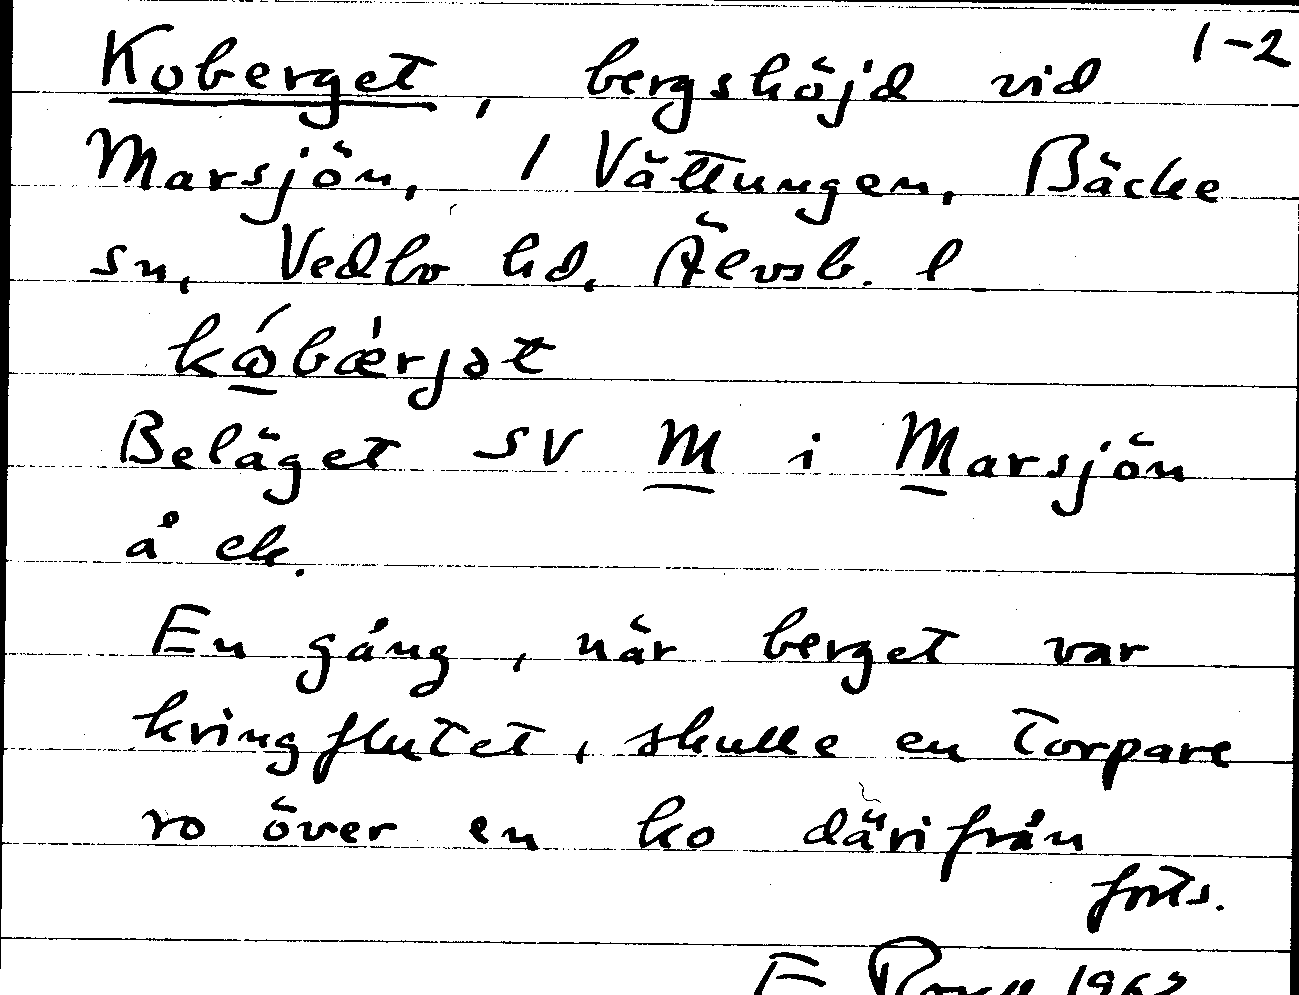 1-2
Koberget, bergshöjd vid
Marsjön, 1 Vättungen, Bäcke
sn, Vedbo hd, Älvsb. l
Beläget SV M i Marsjön
å ek.
En gång, när berget var
kringflutet, skulle en torpare
ro över en ko därifrån
forts.